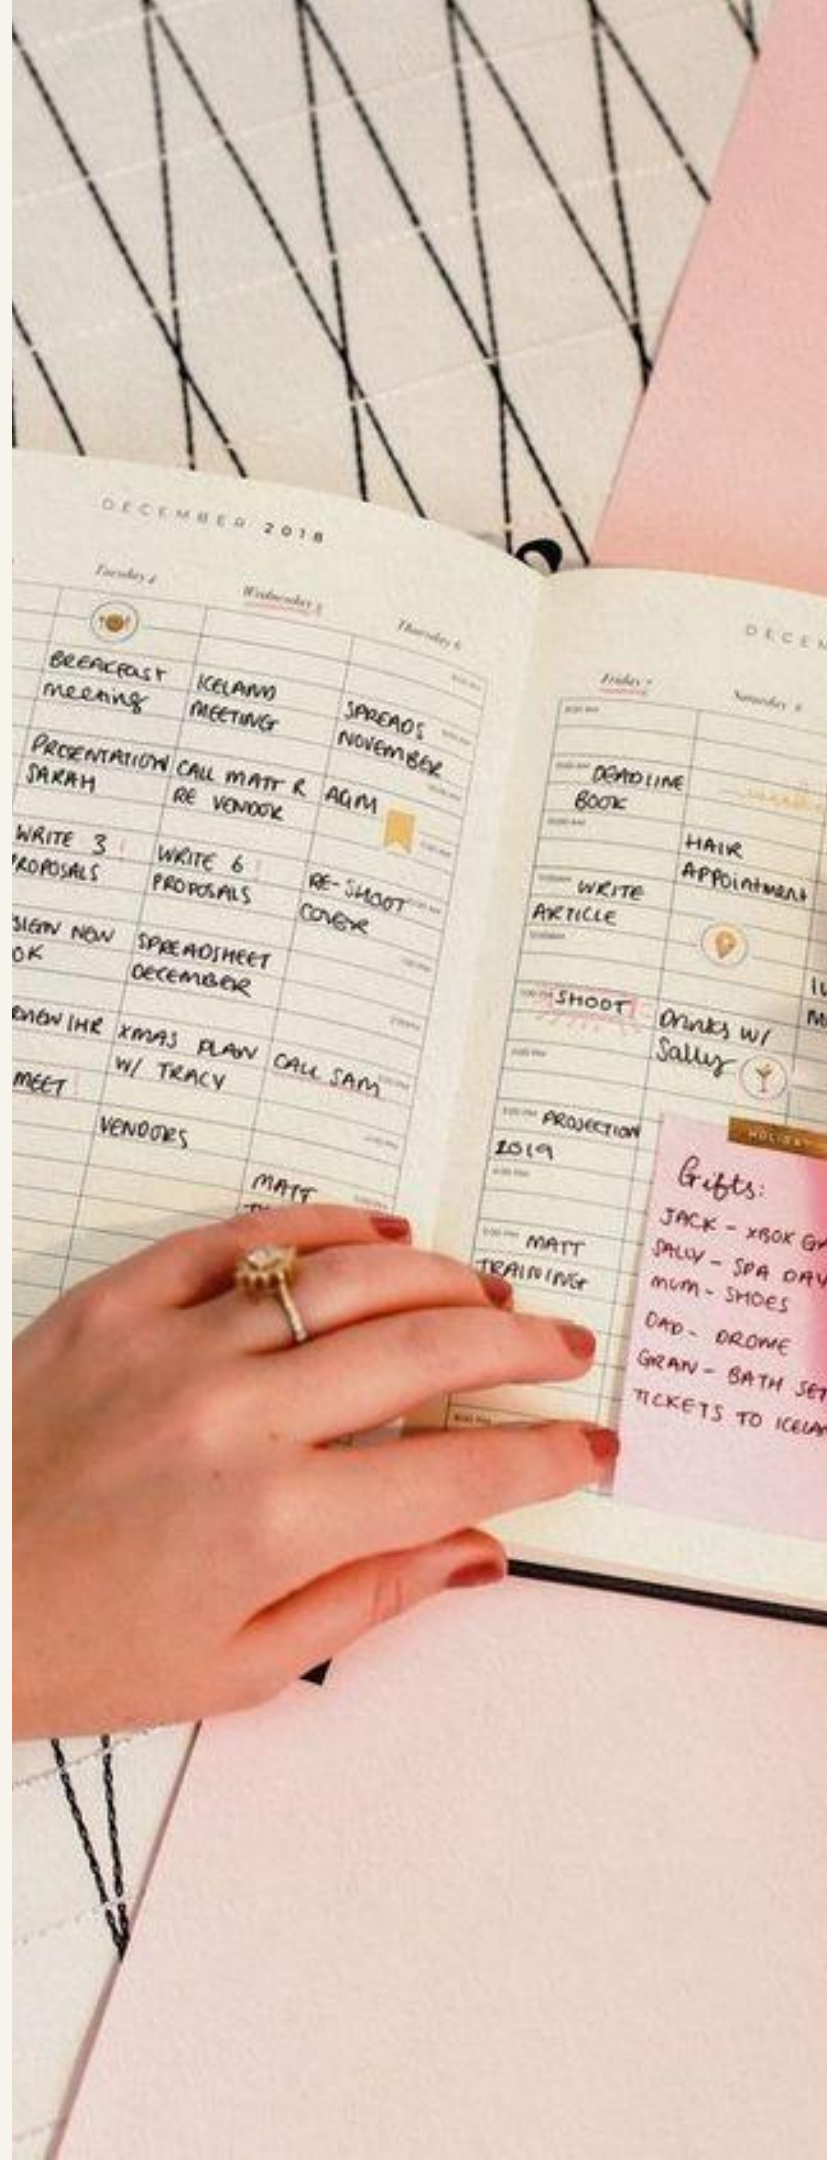 DECEMBER 2018
Tuesday 4
BREAKFAST
meeting
PRESENTATION
SARAH
WRITE 3
PROPOSALS
SIGN NEW
OK
VIEW IHR
MEET
Wednesday 5
ICELAND
MEETING
CALL MATT R
RE VENDOR
WRITE 6
PROPOSALS
SPREADSHEET
DECEMBER
XMAS PLAN
W/ TRACY
VENDORS
Thursday 6
SPREADS
NOVEMBER
AGM
RE-SHOOT
COVER
CALL SAM
MATT
DECEM
Friday 7
DEADLINE
BOOK
WRITE
ARTICLE
SHOOT
PROJECTION
2019
MATT
TRAINING
Saturday 8
HAIR
APPOINTMENT
Drinks W/
Sally
HOLIDAY
Gifts:
JACK - XBOX
SALLY - SPA DAY
MUM - SHOES
DAD - DRONE
GRAN - BATH SET
TICKETS TO ICELAN